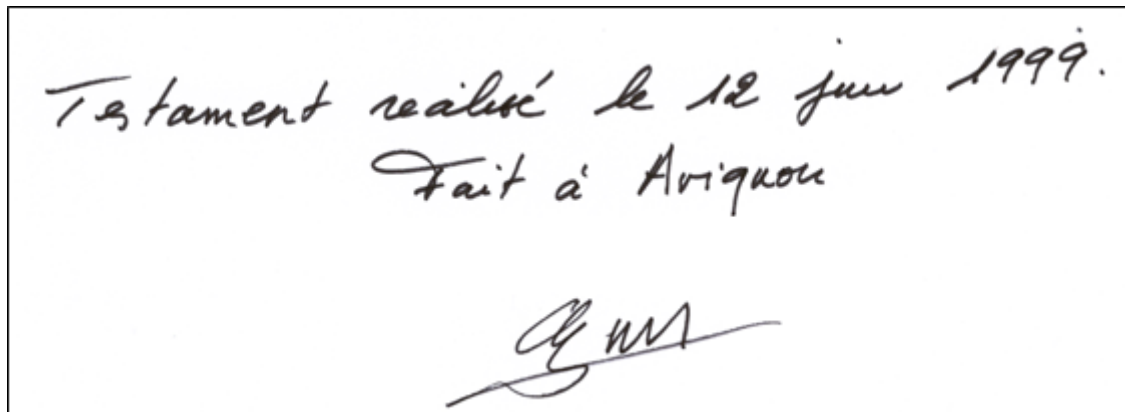 Testament realisé le 12 juin 1999.
Fait à Avignon